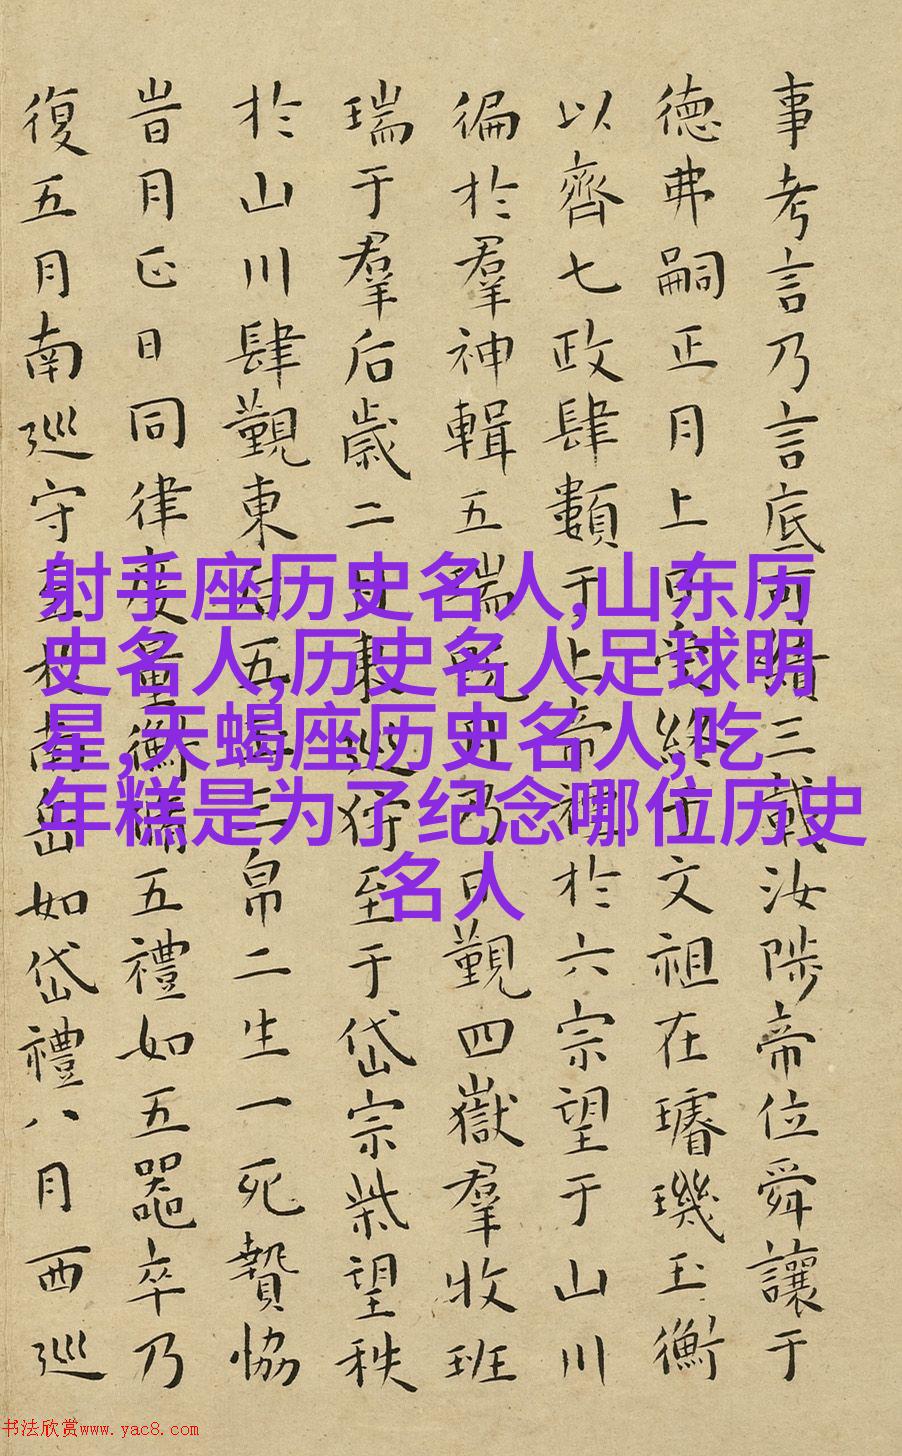 事考言乃言底可績三載汝陟帝位舜讓于
德弗嗣正月上日受終于文祖在璿璣玉衡
以齊七政肆類于上帝禋於六宗望于山川
徧於羣神輯五瑞既月乃日覲四嶽羣牧班
瑞于羣后歲二月東巡狩至于岱宗柴望秩
於山川肆覲東后五玉三帛二生一死贄協
旹月正日同律度量衡脩五禮如五器卒乃
復五月南巡守至於南岳如岱禮八月西巡
射手座历史名人,山东历
史名人,历史名人足球明
星,天蝎座历史名人,吃
年糕是为了纪念哪位历史
名人
书法欣赏www.yac8.com